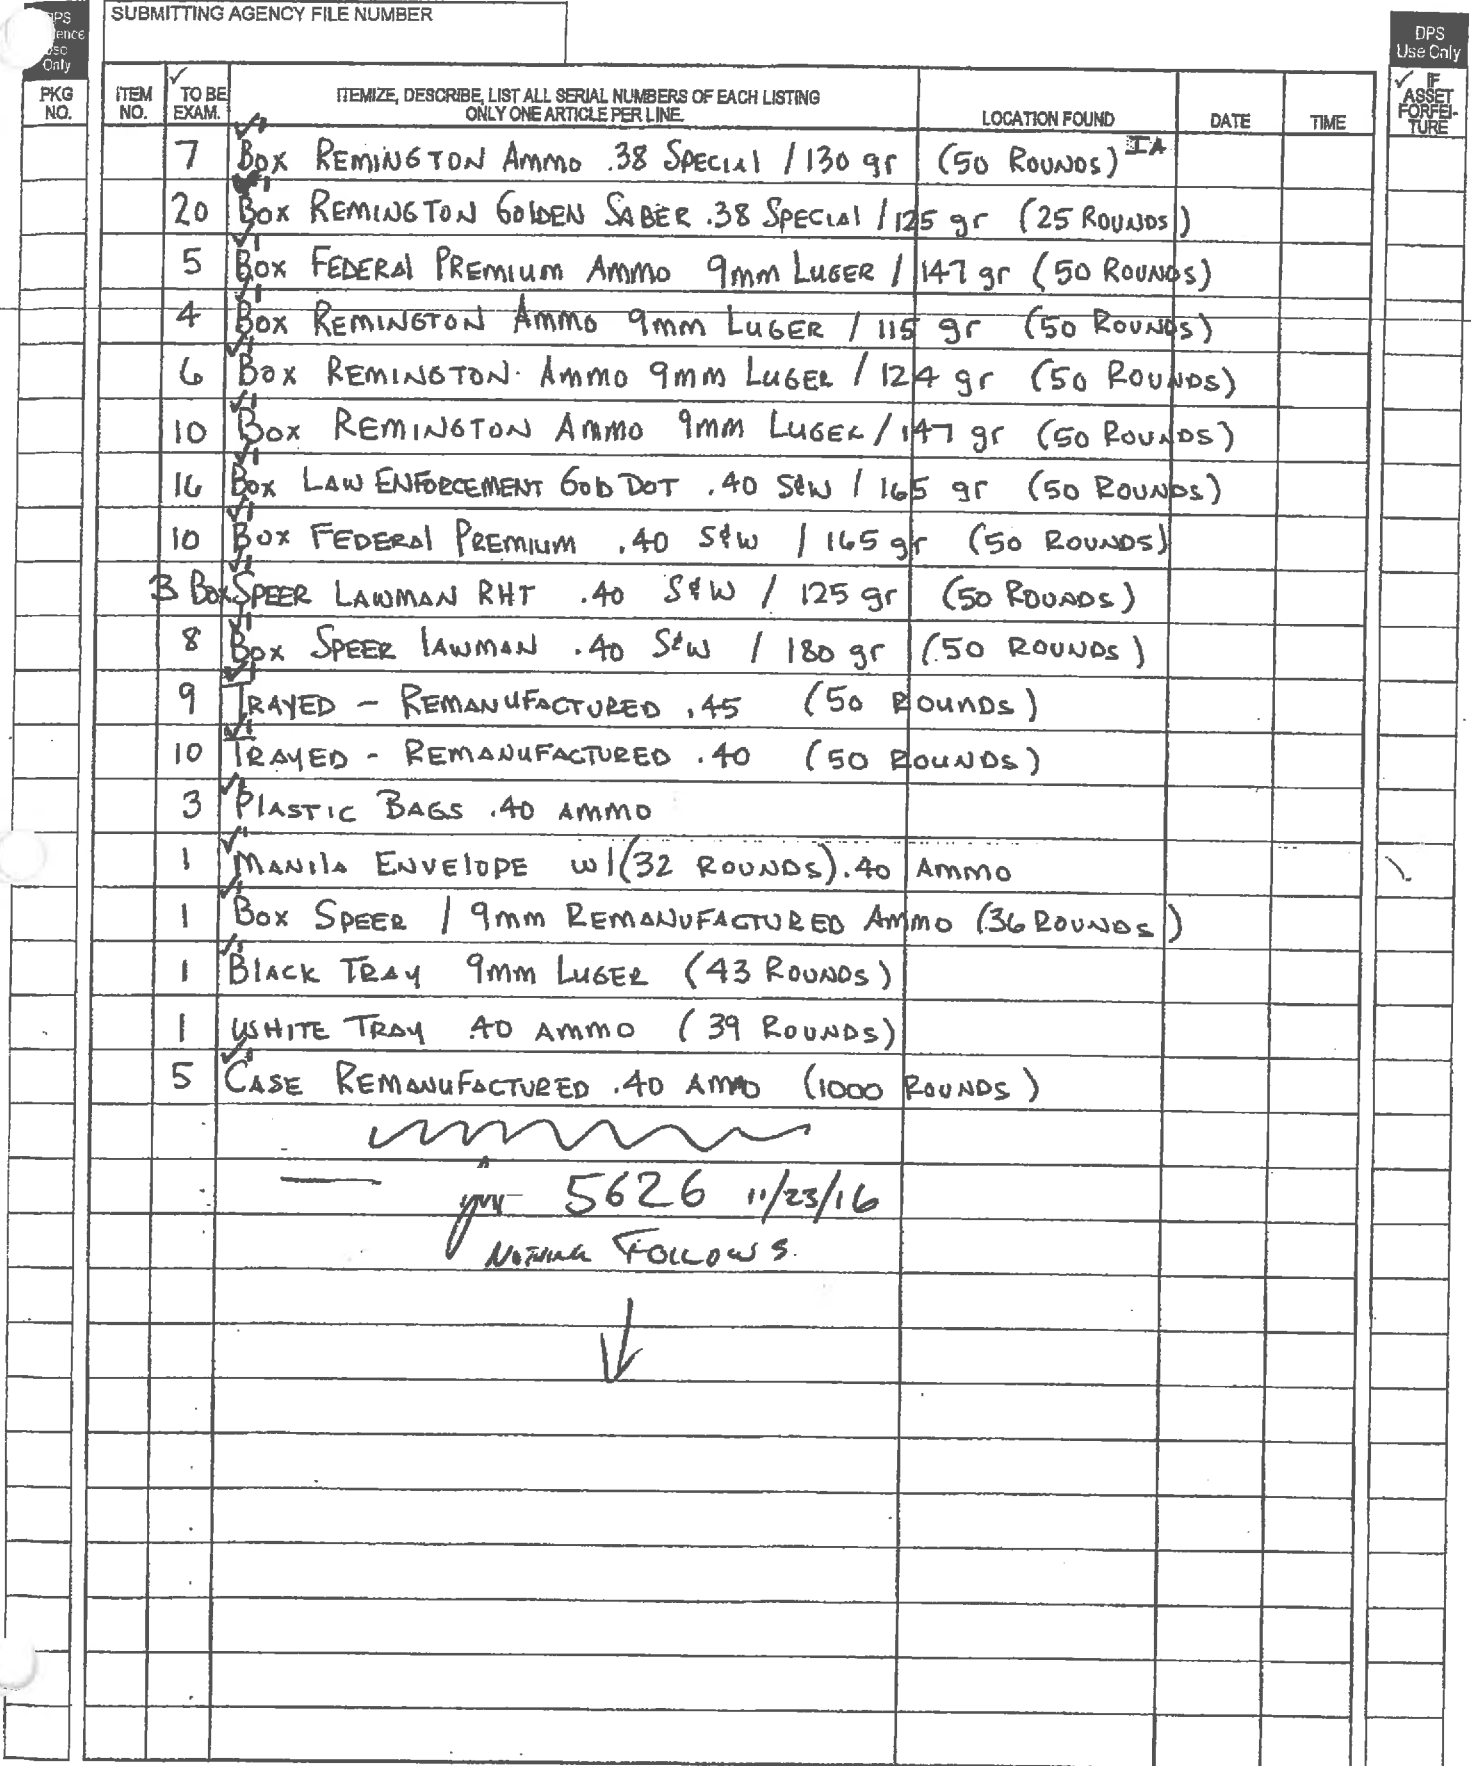 SUBMITTING AGENCY FILE NUMBER
DPS
Use Only
PKG NO.
ITEM NO.
✓ TO BE EXAM.
ITEMIZE, DESCRIBE, LIST ALL SERIAL NUMBERS OF EACH LISTING
ONLY ONE ARTICLE PER LINE.
LOCATION FOUND
DATE
TIME
DPS
Use Only
✓ IF ASSET FORFEI-TURE
7 Box REMINGTON Ammo .38 SPECIAL / 130 gr (50 ROUNDS) IA
20 Box REMINGTON GOLDEN SABER .38 SPECIAL / 125 gr (25 ROUNDS)
5 Box FEDERAL PREMIUM AMMO 9mm LUGER / 147 gr (50 ROUNDS)
4 Box REMINGTON AMMO 9mm LUGER / 115 gr (50 ROUNDS)
6 Box REMINGTON AMMO 9mm LUGER / 124 gr (50 ROUNDS)
10 Box REMINGTON AMMO 9mm LUGER / 147 gr (50 ROUNDS)
16 Box LAW ENFORCEMENT GOD DOT .40 S&W / 165 gr (50 ROUNDS)
10 Box FEDERAL PREMIUM .40 S&W / 165 gr (50 ROUNDS)
3 Box SPEER LAWMAN RHT .40 S&W / 125 gr (50 ROUNDS)
8 Box SPEER LAWMAN .40 S&W / 180 gr (50 ROUNDS)
9 TRAYED - REMANUFACTURED .45 (50 ROUNDS)
10 TRAYED - REMANUFACTURED .40 (50 ROUNDS)
3 PLASTIC BAGS .40 AMMO
1 MANILA ENVELOPE w/(32 ROUNDS).40 AMMO
1 BOX SPEER / 9mm REMANUFACTURED AMMO (36 ROUNDS)
1 BLACK TRAY 9mm LUGER (43 ROUNDS)
1 WHITE TRAY .40 AMMO (39 ROUNDS)
5 CASE REMANUFACTURED .40 AMMO (1000 ROUNDS)
5626 11/23/16
NOTHING FOLLOWS